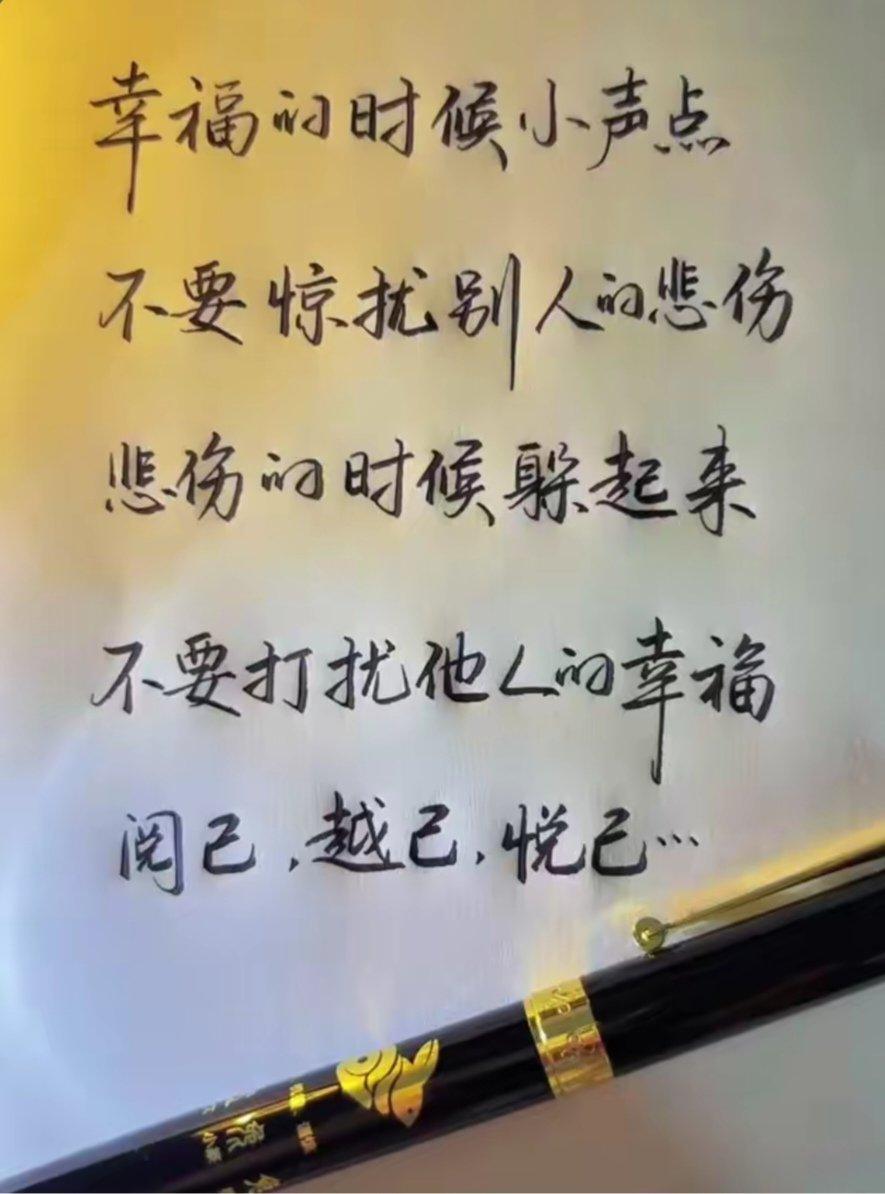 幸福的时候小声点
不要惊扰别人的悲伤
悲伤的时候躲起来
不要打扰他人的幸福
阅己，越己，悦己…